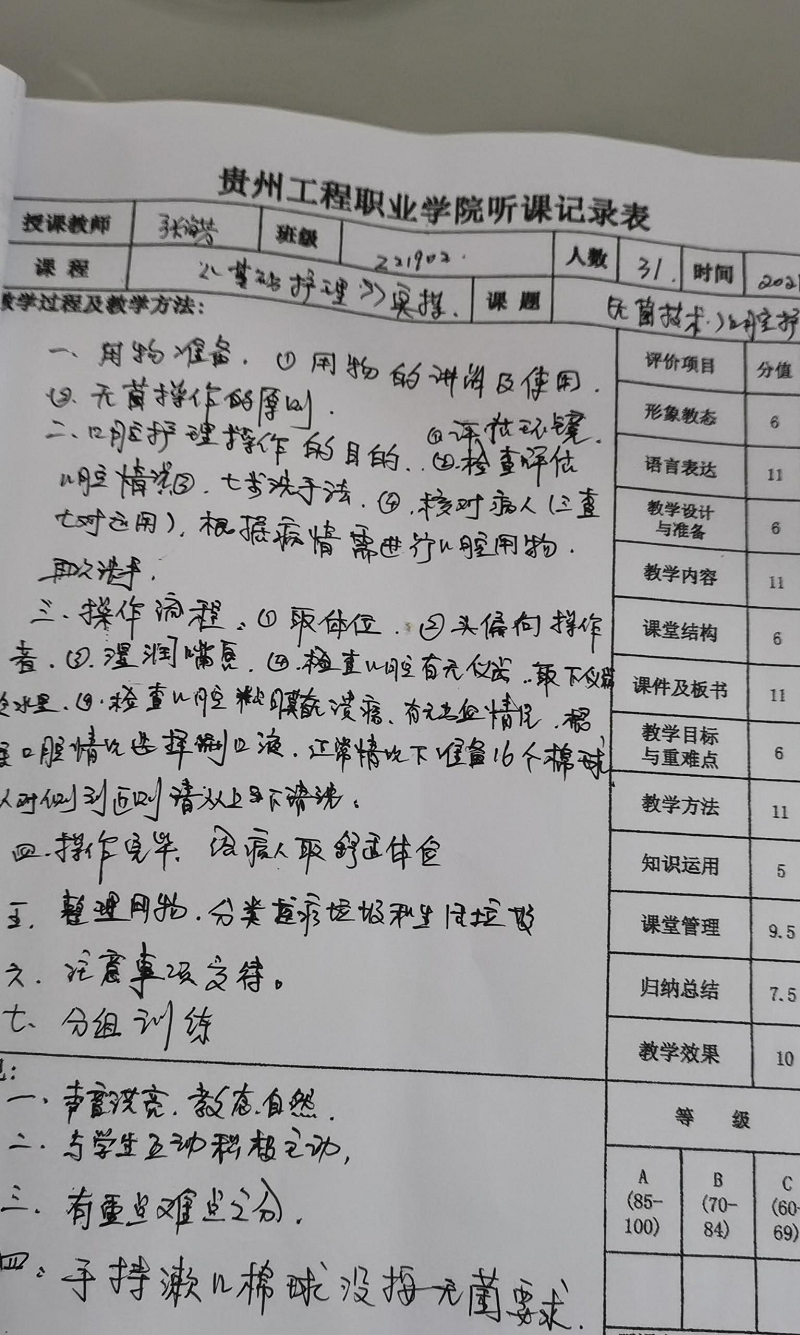 贵州工程职业学院听课记录表
授课教师 班级 221902. 人数 31. 时间 202
课程 《基础护理》实操. 课题 (无菌技术.)口腔护
教学过程及教学方法:
一、用物准备. ①用物的讲解及使用.
②.无菌操作的原则.
二、口腔护理操作的目的. ①评估环境.
②.检查评估
口腔情况③.七步洗手法.④.核对病人(三查
七对运用),根据病情需进行口腔用物.
再次洗手.
三、操作流程:①取体位.②头偏向操作
者.③.湿润嘴唇.④.检查口腔有无仪齿..取下仪齿
水里.④.检查口腔粘膜有无溃疡、有无出血情况.根
口腔情况选择漱口液.正常情况下准备16个棉球
从对侧到近侧
四.操作完毕,病人取舒适体位
五.整理用物.分类医疗垃圾和生活垃圾
六、注意事项交待。
七、分组训练
见:
一、声音洪亮.教态.自然.
二、与学生互动积极主动,
三.有重点难点之分.
四:手持漱口棉球没按无菌要求.
评价项目 分值
形象教态 6
语言表达 11
教学设计
与准备 6
教学内容 11
课堂结构 6
课件及板书 11
教学目标
与重难点 6
教学方法 11
知识运用 5
课堂管理 9.5
归纳总结 7.5
教学效果 10
等 级
A B C
(85- (70- (60-
100) 84) 69)